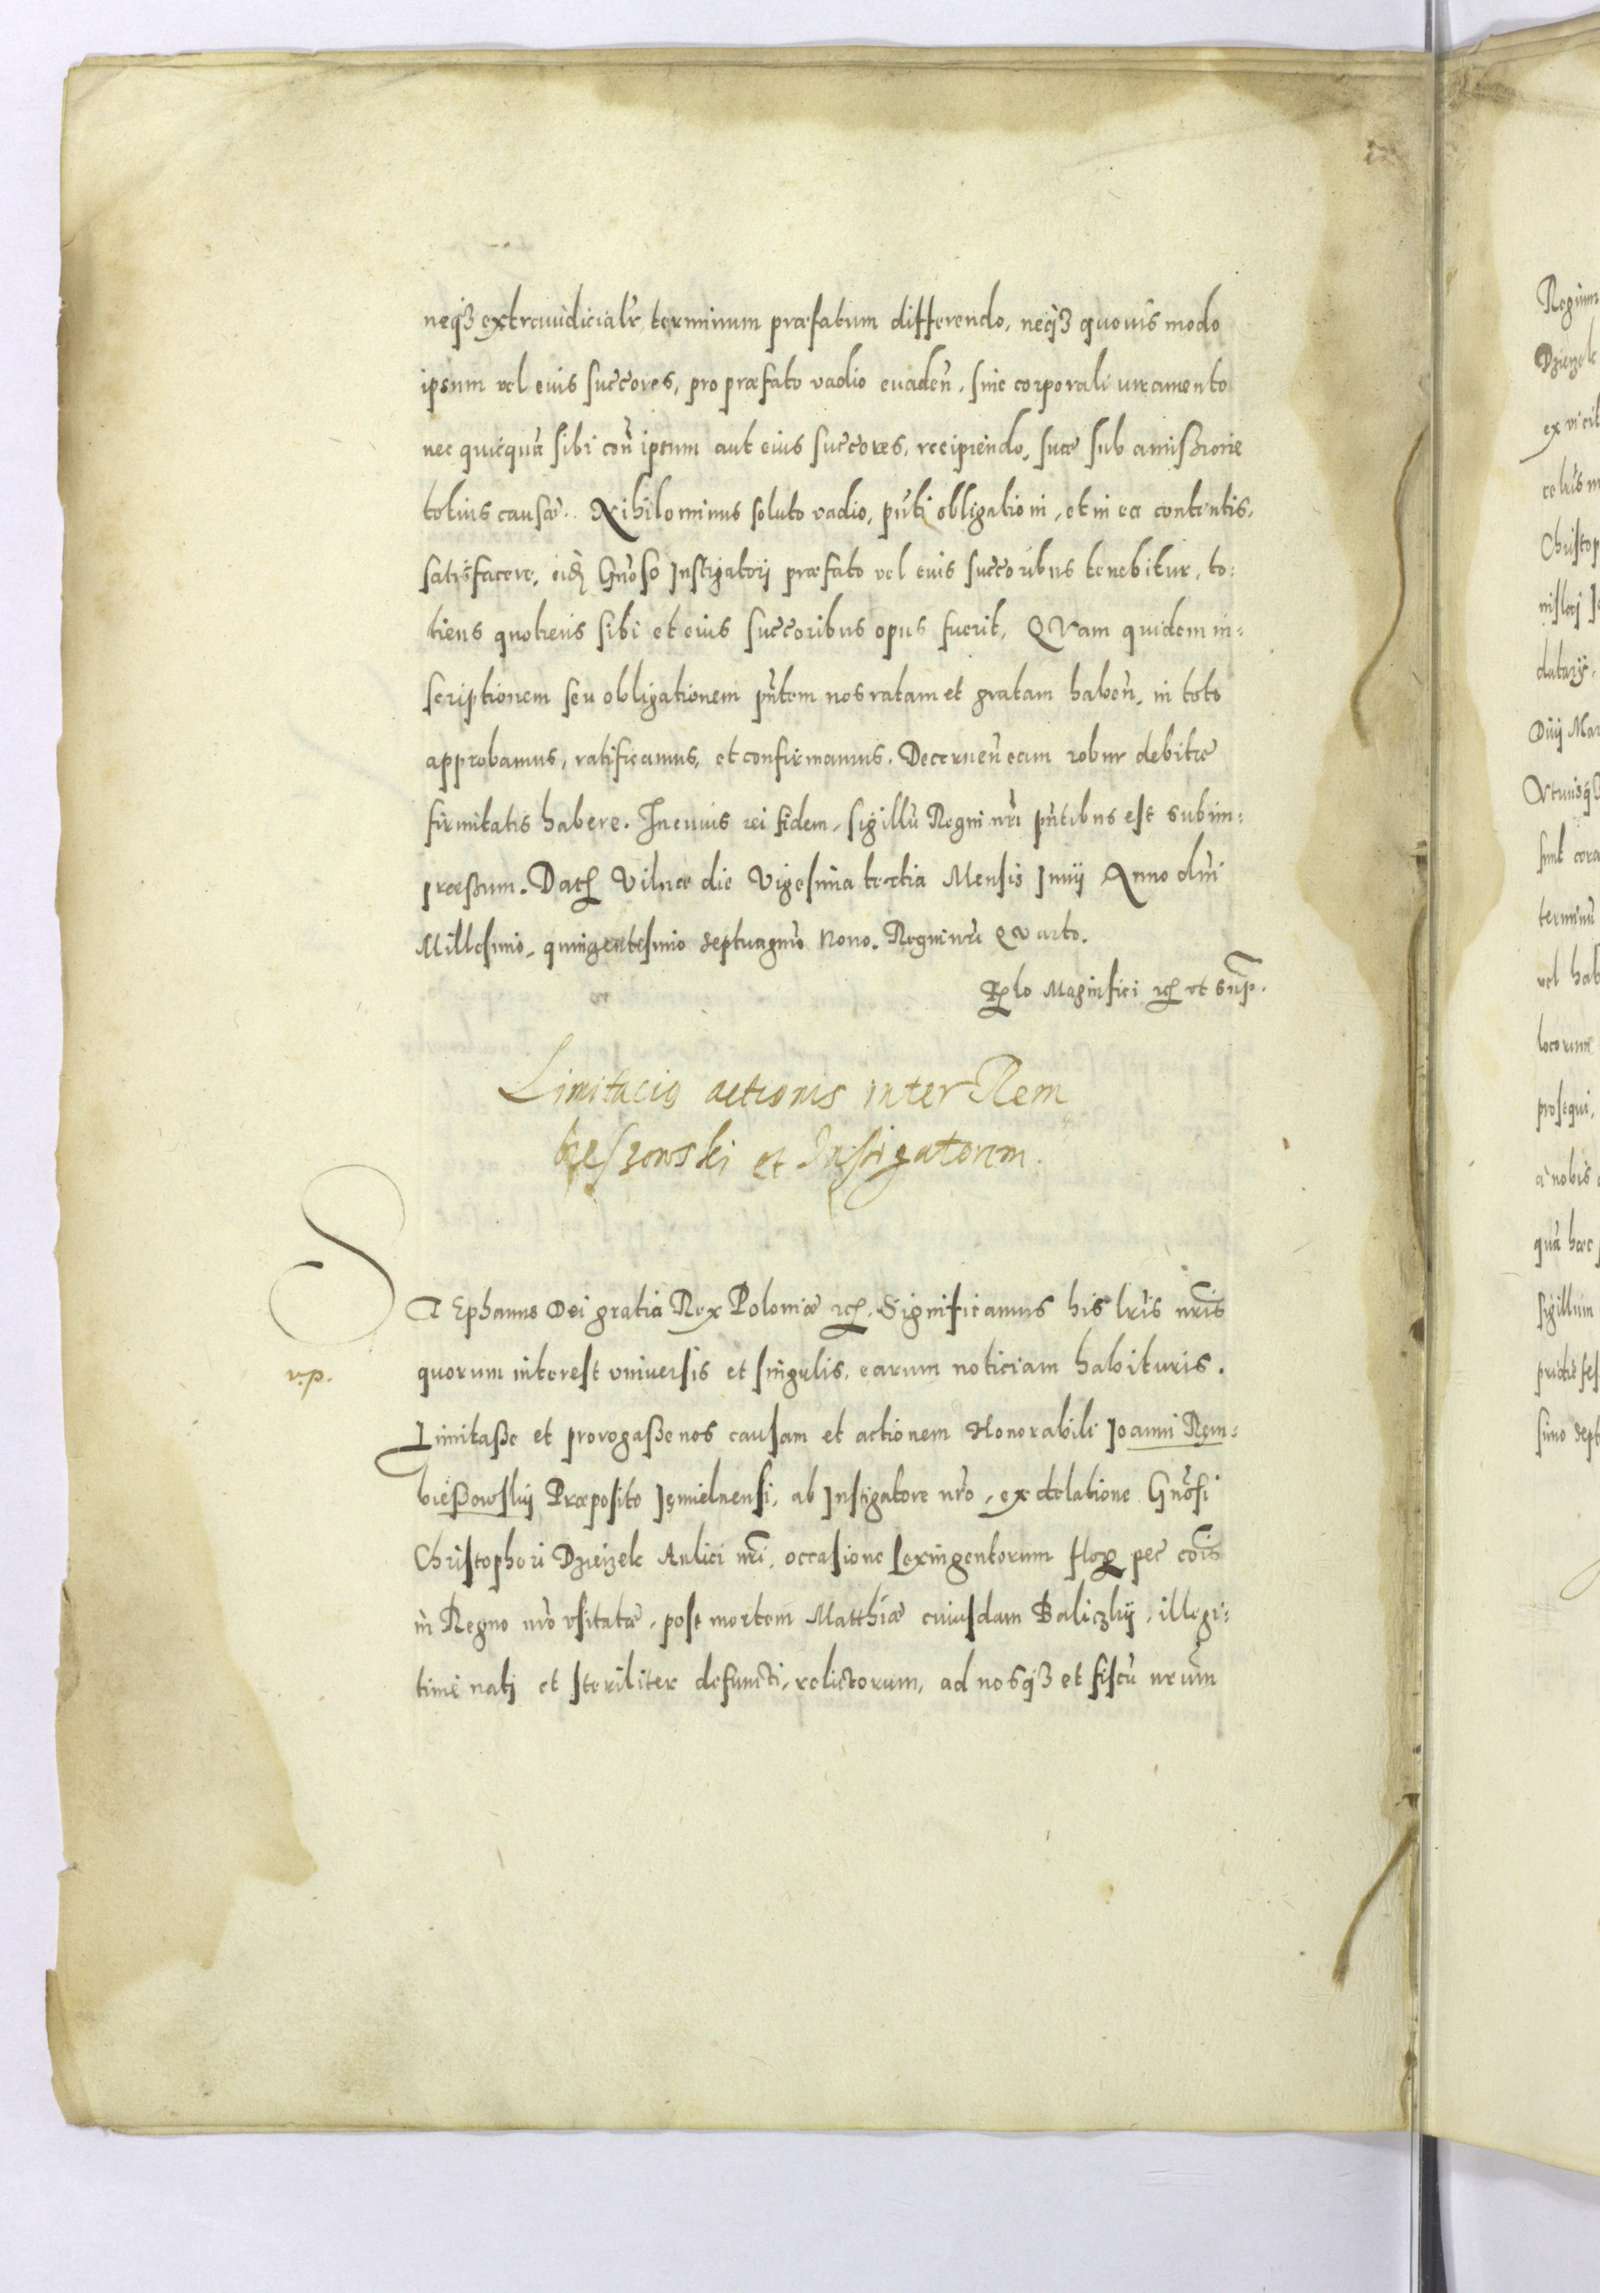 neq3 extraiudicialr̃ terminum præfatum differendo, neq3 quovis modo
ipsum vel eius succores, pro præfato vadio evadeñ, sine corporali iuramento
nec quicquã sibi coñ ipsum aut eius succores, recipiendo, suæ sub amissione
totius causæ. Nihilominus soluto vadio, pñti obligationi, et in ea contentis,
satisfacere, eidẽ Gñoso Instigatori præfato vel eius succoribus tenebitur, to:
tiens quotiens sibi et eius succoribus opus fuerit, QVam quidem in:
scriptionem seu obligationem pñtem nos ratam et gratam habeñ, in toto
approbamus, ratificamus, et confirmamus. Decerneñ eam robur debitæ
firmitatis habere. In cuius rei fidem, sigillũ Regni nr̃i pñtibus est subim:
præssum. Datũ Vilnæ die Vigesima tertia Mensis Iunij Anno dñi
Millesimo, quingentesimo septuagmõ Nono. Regni nr̃i QVarto.
Rlo Magnifici etc ut sup̃.
Limitacio actionis inter Rem
bieszowski et Instigatorem.
STEphanus Dei gratia Rex Poloniæ etc. Significamus his lr̃is nr̃is
v.p.
quorum interest vniuersis et singulis, earum noticiam habituris.
Limitasse et prorogasse nos causam et actionem Honorabili Joanni Rem:
bießowskij Præposito Jemielnensi, ab Instigatore nr̃o, ex delatione Gñosi
Christophori Dzierzek Aulici nr̃i, occasione sexingentorum flor pec cõis
in Regno nr̃o vsitatæ, post mortem Matthiæ cuiusdam Baliczkij, illegi:
time natj et steriliter defuncti, relictorum, ad nosq3 et fiscũ nr̃um